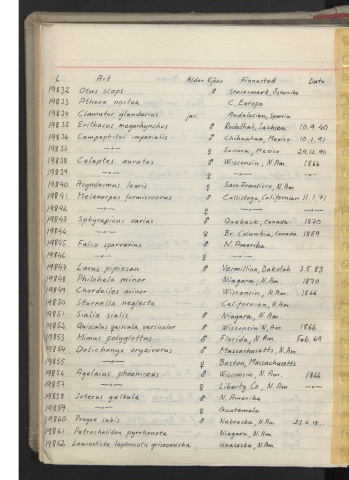 L. Art Alder Kjønn Finnested Dato
19832 Otus scops ♂ Steiermark, Österrike
19833 Athene noctua C. Europa
19834 Clamator glandarius juv. Andalusien, Spania
19835 Erithacus megarhynchos ♂ Sachsen 10.9.40
19836 Campephilus imperialis ♂ Chihuahua, Mexico 10.1.91
19837 —"— ♀ Sonora, Mexico 24.12.90
19838 Colaptes auratus ♂ Wisconsin, N.Am. 1864
19839 —"— ♀ —"—
19840 Asyndesmus lewis ♀ San Francisco, N.Am
19841 Melanerpes formicivorus ♂ Calistoga, Californien 11.1.71
19842 —"— ♀ —"—
19843 Sphyrapicus varius ♂ Quebeck, Canada 1870
19844 —"— ♀ Br. Columbia, Canada 1859
19845 Falco sparverius ♂ N. Amerika
19846 —"— ♀
19847 Larus pipixcan ♂ Vermillion, Dakotah 3.5.83
19848 Philohela minor Niagara, N.Am 1870
19849 Chordeiles minor ♂ Wisconsin, N.Am. 1866
19850 Sturnella neglecta Californien, N.Am.
19851 Sialia sialis ♂ Niagara, N.Am
19852 Quiscalus quiscula versicolor ♂ Wisconsin N.Am. 1866
19853 Mimus polyglottus ♂ Florida, N.Am Feb. 69
19854 Dolichonyx oryzivorus ♂ Massachusetts, N.Am.
19855 —"— ♀ Boston, Massachusetts
19856 Agelaius phoeniceus ♂ Wisconsin, N.Am. 1866
19857 —"— ♀ Liberty Co, N.Am —"—
19858 Icterus galbula ♂ N. Amerika
19859 —"— ♀ Guatemala
19860 Progne subis ♂ Nebraska, N.Am.
19861 Petrochelidon pyrrhonota Niagara, N.Am.
19862 Leucosticte tephrocotis griseonucha Unalaska, N.Am.